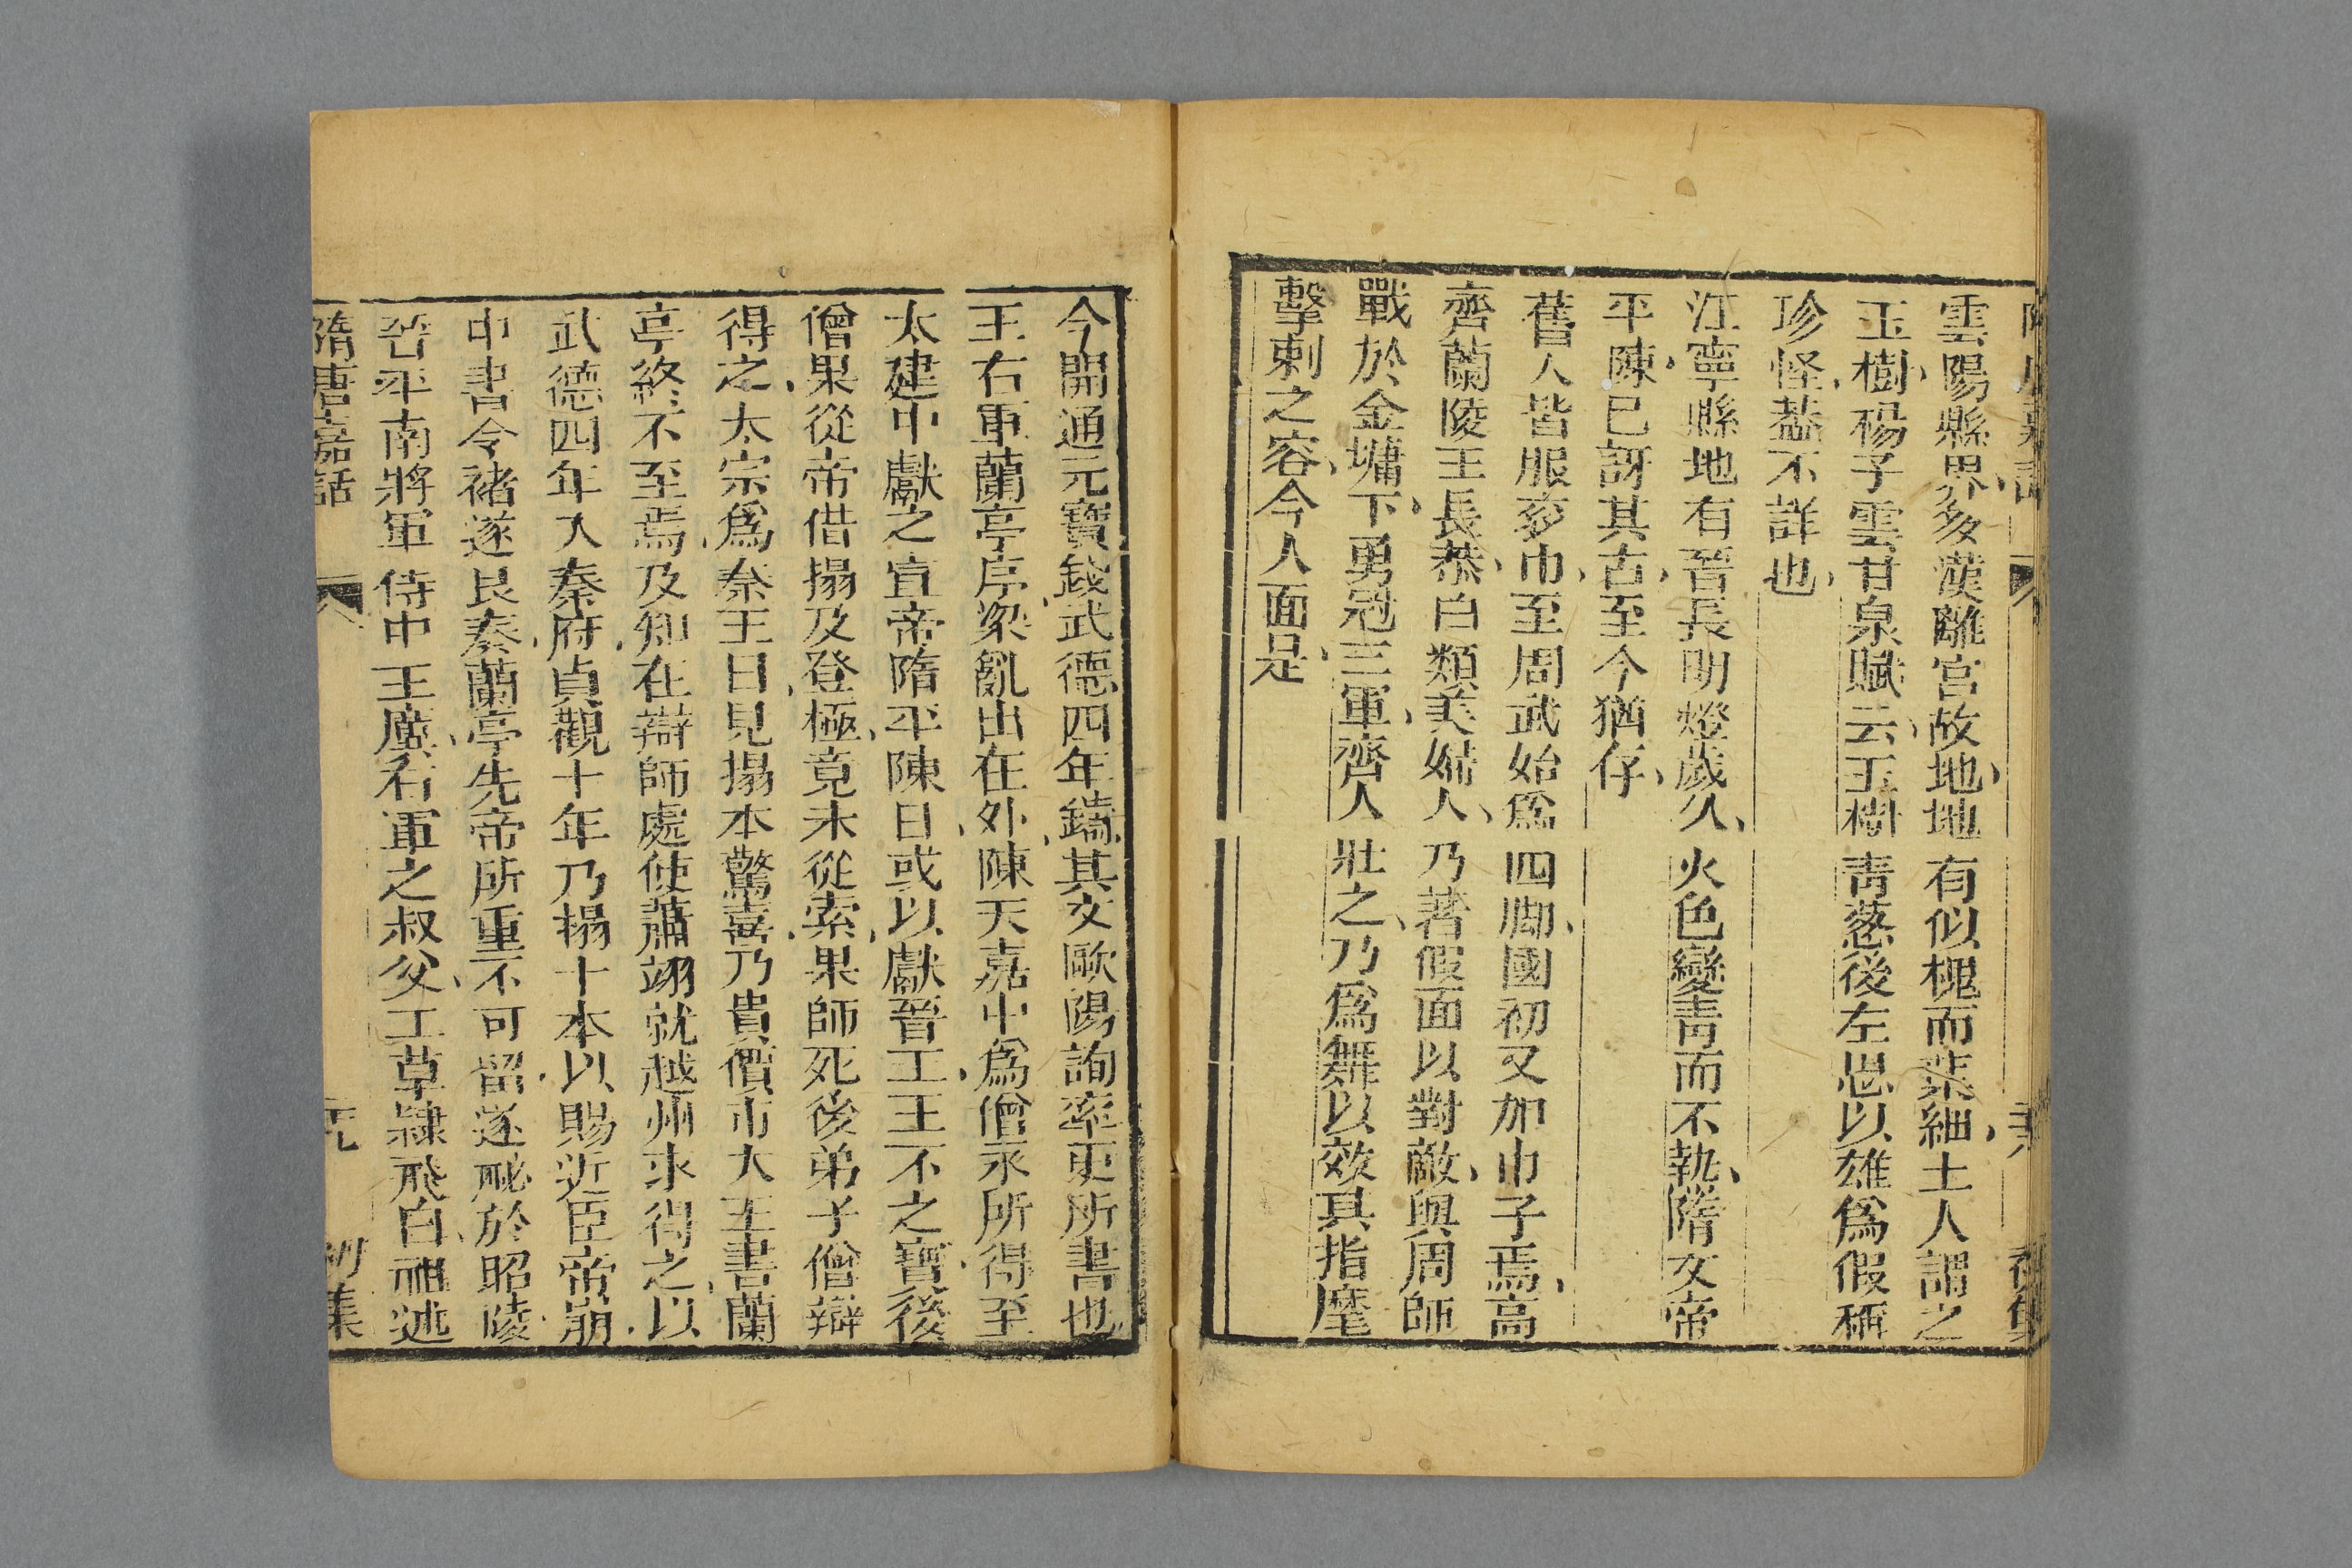 雲陽縣界多漢離宮故地地有似槐而葉細土人謂之
玉樹楊子雲甘泉賦云玉樹青葱後左思以雄爲假稱
珍怪葢不詳也
江寧縣地有晉長明燈歲久火色變青而不執隋文帝
平陳已訝其古至今猶存
舊人皆服衮巾至周武始爲四脚國初又加巾子焉高
齊蘭陵王長恭白類美婦人乃著假面以對敵與周師
戰於金墉下勇冠三軍齊人壯之乃爲舞以效其指麾
擊刺之容今人面是
今開通元寶錢武德四年鑄其文歐陽詢率更所書也
王右軍蘭亭序梁亂出在外陳天嘉中爲僧永所得至
太建中獻之宣帝隋平陳日或以獻晉王王不之寶後
僧果從帝借搨及登極竟未從索果師死後弟子僧辯
得之太宗爲秦王日見搨本驚喜乃貴價市大王書蘭
亭終不至焉及知在辯師處使蕭翊就越州求得之以
武德四年入秦府貞觀十年乃搨十本以賜近臣帝崩
中書令褚遂良奏蘭亭先帝所重不可留遂祕於昭陵
晉平南將軍侍中王廙右軍之叔父工草隸飛白祖述
隋唐嘉話 元 初集